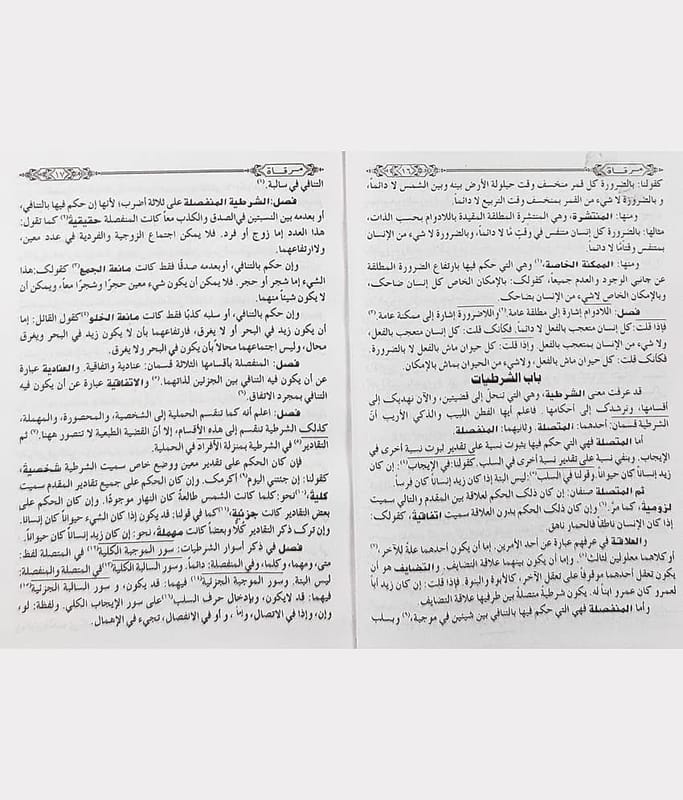 مرقاة ١٦
كقولنا: بالضرورة كل قمر منخسف وقت حيلولة الأرض بينه وبين الشمس لا دائماً،
و بالضرورة لا شيء من القمر بمنخسف وقت التربيع لا دائماً.
ومنها: المنتشرة، وهي المنتشرة المطلقة المقيدة باللادوام بحسب الذات،
مثالها: بالضرورة كل إنسان متنفس في وقتٍ مّا لا دائماً، وبالضرورة لا شيء من الإنسان
بمتنفس وقتاًما لا دائماً.
ومنها: الممكنة الخاصة،(١) وهي التي حكم فيها بارتفاع الضرورة المطلقة
عن جانبي الوجود والعدم جميعاً، كقولك: بالإمكان الخاص كل إنسان ضاحك،
وبالإمكان الخاص لاشيء من الإنسان بضاحك.
فصل: اللادوام إشارة إلى مطلقة عامة(٢) واللاضرورة إشارة إلى ممكنة عامة(٣)
فإذا قلت: كل إنسان متعجب بالفعل لا دائماً. فكأنك قلت: كل إنسان متعجب بالفعل،
ولا شيء من الإنسان بمتعجب بالفعل. وإذا قلت: كل حيوان ماش بالفعل لا بالضرورة.
فكأنك قلت: كل حيوان ماش بالفعل، ولاشيء من الحيوان بماش بالإمكان.
باب الشرطيات
قد عرفت معنى الشرطية، وهي التي تنحل إلى قضيتين، والآن نهديك إلى
أقسامها، ونرشدك إلى أحكامها. فاعلم أيها الفطن اللبيب والذكي الأريب أن
الشرطية قسمان: أحدهما: المتصلة. وثانيهما: المنفصلة.
أما المتصلة فهي التي حكم فيها بثبوت نسبة على تقدير ثبوت نسبة أخرى في
الإيجاب. وبنفي نسبة على تقدير نسبة أخرى في السلب. كقولنا: في الإيجاب(٤): إن كان
زيد إنساناً كان حيواناً. وقولنا في السلب(٥): ليس البتة إذا كان زيد إنساناً كان فرساً.
ثم المتصلة صنفان: إن كان ذلك الحكم لعلاقة بين المقدم والتالي سميت
لزومية، كما مرّ.(٦) وإن كان ذلك الحكم بدون العلاقة سميت اتفاقية، كقولك:
إذا كان الإنسان ناطقاً فالحمار ناهق.
والعلاقة في عرفهم عبارة عن أحد الأمرين. إما أن يكون أحدهما علة للآخر،
أو كلاهما معلولين لثالث. وإما أن يكون بينهما علاقة التضايف. والتضايف هو أن
يكون تعقل أحدهما موقوفاً على تعقل الآخر، كالأبوة والبنوة. فإذا قلت: إن كان زيد أباً
لعمرو كان عمرو ابناً له. يكون شرطية متصلة بين طرفيها علاقة التضايف.
وأما المنفصلة فهي التي حكم فيها بالتنافي بين شيئين في موجبة، وبسلب
مرقاة ١٧
التنافي في سالبة.
فصل: الشرطية المنفصلة على ثلاثة أضرب؛ لأنها إن حكم فيها بالتنافي،
أو بعدمه بين النسبتين في الصدق والكذب معاً كانت المنفصلة حقيقية كما تقول:
هذا العدد إما زوج أو فرد. فلا يمكن اجتماع الزوجية والفردية في عدد معين،
ولا ارتفاعهما.
وإن حكم بالتنافي، أوبعدمه صدقًا فقط كانت مانعة الجمع كقولك: هذا
الشيء إما شجر أو حجر. فلا يمكن أن يكون شيء معين حجرًا وشجرًا معاً، ويمكن أن
لا يكون شيئاً منهما.
وإن حكم بالتنافي، أو سلبه كذبًا فقط كانت مانعة الخلو كقول القائل: إما
أن يكون زيد في البحر أو لا يغرق، فارتفاعهما بأن لا يكون زيد في البحر ويغرق
محال، وليس اجتماعهما محالاً بأن يكون في البحر ولا يغرق.
فصل: المنفصلة بأقسامها الثلاثة قسمان: عنادية واتفاقية. والعنادية عبارة
عن أن يكون فيه التنافي بين الجزئين لذاتهما. والاتفاقية عبارة عن أن يكون فيه
التنافي بمجرد الاتفاق.
فصل: اعلم أنه كما تنقسم الحملية إلى الشخصية، والمحصورة، والمهملة،
كذلك الشرطية تنقسم إلى هذه الأقسام، إلا أنّ القضية الطبعية لا تتصور ههنا. ثم
التقادير في الشرطية بمنزلة الأفراد في الحملية.
فإن كان الحكم على تقدير معين ووضع خاص سميت الشرطية شخصية،
كقولنا: إن جئتني اليوم أكرمك. وإن كان الحكم على جميع تقادير المقدم سميت
كلية، نحو: كلما كانت الشمس طالعةً كان النهار موجودًا. وإن كان الحكم على
بعض التقادير كانت جزئية، كما في قولنا: قد يكون إذا كان الشيء حيواناً كان إنسانا.
وإن ترك ذكر التقادير كُلًّا وبعضاً كانت مهملة، نحو: إن كان زيد إنساناً كان حيواناً.
فصل في ذكر أسوار الشرطيات: سور الموجبة الكلية في المتصلة لفظ:
متى، ومهما، وكلما، وفي المنفصلة: دائماً. وسور السالبة الكلية في المتصلة والمنفصلة:
ليس البتة. وسور الموجبة الجزئية فيهما: قد يكون، و سور السالبة الجزئية
فيهما: قد لايكون، وبإدخال حرف السلب على سور الإيجاب الكلي. ولفظة: لو،
وإن، وإذا في الاتصال، وإما ، و أو في الانفصال، تجيء في الإهمال.